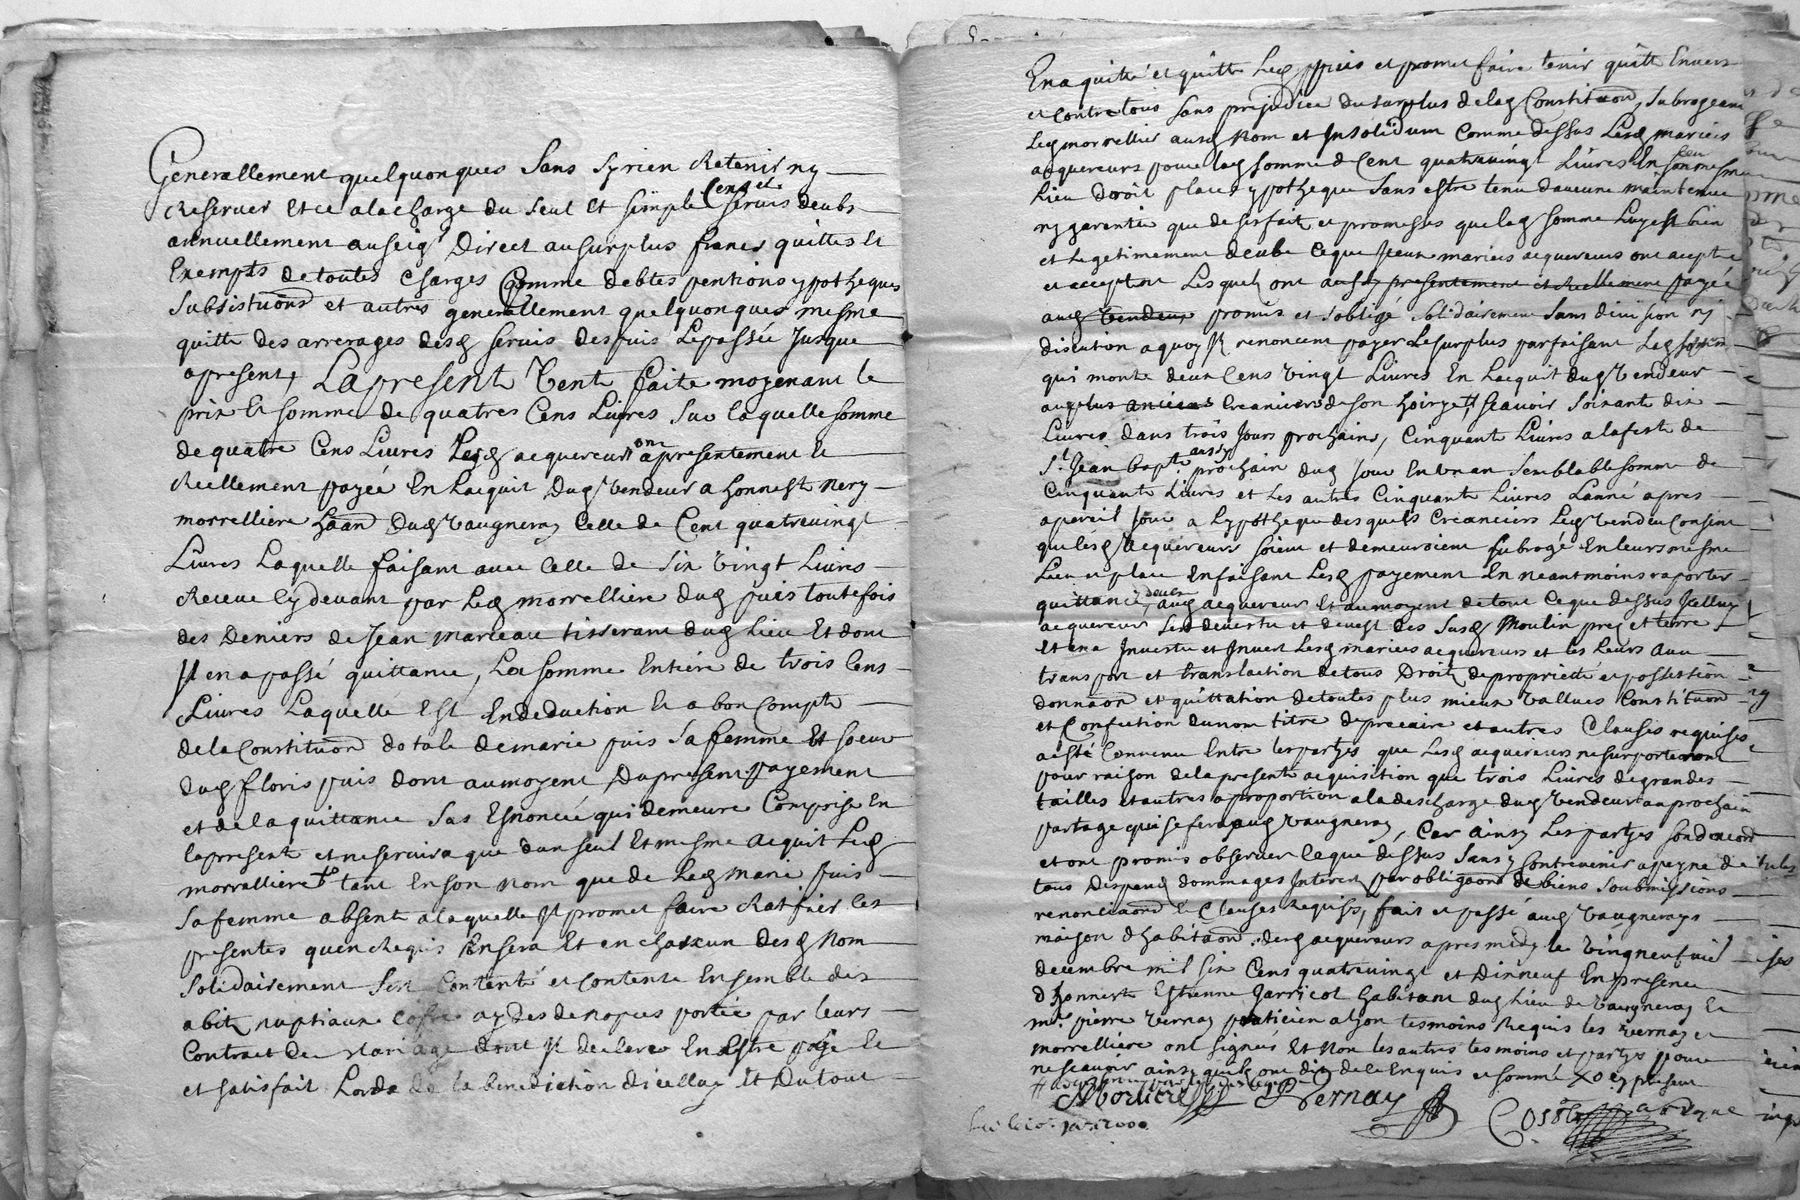 Generallement quelquonques sans sy rien Retenir ny
Reserver et ce a la charge du seul et simple Cens et servis deubs
annuellement au seig.r Direct au surplus francs quittes et
Exempts de toutes Charges Comme debtes pentions ypotheques
Subsistuons et autres generallement quelquonques mesme
quitte des arrerages desd servis despuis Le passée Jusque
apresent, La present Vente faite moyenant le
prix et somme de quatres Cens Livres sur laquelle somme
de quatre Cens Livres Lesd acquereurs ont apresentement et
Reellement payée En Lacquit dud Vendeur a honnest nery
morrelliere dud Vaugneray Celle de Cent quatrevingt
Livres Laquelle faisant avec Celle de six vingt Livres
Receue Cy devant par Led morrelliere dud puis toutefois
des Deniers de Jean marceau tisserant dud Lieu Et dont
Il en a passé quittance, La somme Entiére de trois Cens
Livres Laquelle Est En deduction et a bon Compte
de la Constituon dotale de marie puis sa femme Et soeur
dud floris puis dont au moyent Du present payement
et de la quittance sas Esnoncée qui demeure Comprise En
la present et ne servira que dun seul Et mesme acquit Led
morralliere tant En son nom que de Lad marie puis
sa femme absente a laquelle Il promet faire Ratfier les
presentes quen Requis En sera Et en chascun desd Nom
solidairement sest Contenté et Contente Ensemble des
abitz nuptiaux Cofre aydes de nopces portée par leurs
Contract de Mariage dont Il declere En Estre payé Et
et satisfait Lors de la benediction dicelluy Et Du tout
En a quitté et quitte Led puis et promet faire tenir quitte Envers
et Contre tous sans prejudice du surplus de lad Constituon, subrogeant
Led morrellier aud Nom et Insolidum Comme dessus Lesd mariers
acquereurs pour lad somme d Cent quatrevingt Livres En son mesme
Lieu Droit place ypotheque sans estre tenu daucune maintenue
ny garentie que de ses fait et promesses que lad somme Luy est bien
et Legetimement deube Ce que Jceux mariers acquereurs ont acepté
et acceptent Lesquelz ont aussy presentement et Reellement payée
aud Vendeur promis et sobligé solidairement sans division ny
discution a quoy Jlz renoncent payer Le surplus parfaisant Lad somme
qui monte deux Cens vingt Livres En Lacquit dud Vendeur
au plus anciens Creanciers de son hoirye sçavoir soixante dix
Livres dans trois Jours prochains, Cinquant Livres a la feste de
S.t Jean bapt.e aussy prochain dud Jour En Un an semblable somme de
Cinquante Livres et Les autres Cinquante Livres Lanné apres
a pareil Jour a Lypotheque desquels Creanciers Led Vendeur Consent
que lesd acquereurs soient et demeuroient subrogé En leurs mesme
Lieu et place En faisant Lesd payement En neantmoins raporter
quittance aud acquereur Et au moyent de tout Ce que dessus Jcelluy
acquereur sest devertu et devest des susd Moulin prez et terre
et en a Jnvestu et Jnvest Lesd mariers acquereurs et les Leurs avec
transport et translaction de tous Droitz de proprieté et possestion
donnaon et quittation de toutes plus mieux vallues Constituon
et Confection du nom titre de precaire et autres Clauses requises
a esté Convenu Entre les partyes que Lesd acquereurs ne surporteront
pour raison de la presente acquisition que trois Livres de grandes
tailles et autres a proportion a la descharge dud Vendeur au prochain
partage qui se fera aud Vaugneray, Car ainsy Les partyes sond acord
et ont promis observer Ce que dessus sans y Contrevenir a peyne de
tous Despand dommages Interest par obligaons de biens soubmissions
renonciaons et Clauses Requises, fait et passé aud Vaugnerays
maison d habitaon desd acquereurs apres midy le vingneufvie
decembre mil six Cens quatrevingt et Dixneuf En presence
d honneste Estienne Jarricot habitant dud Lieu de Vaugneray Et
m.re pierre Vernay praticien a Lyon tesmoins Requis Les Vernay et
morrelliere ont signés Et Non les autres tesmoins et partyes pour
ne scavoir ainsy quilz ont dit de le Enquis et sommé
Morliere Vernay